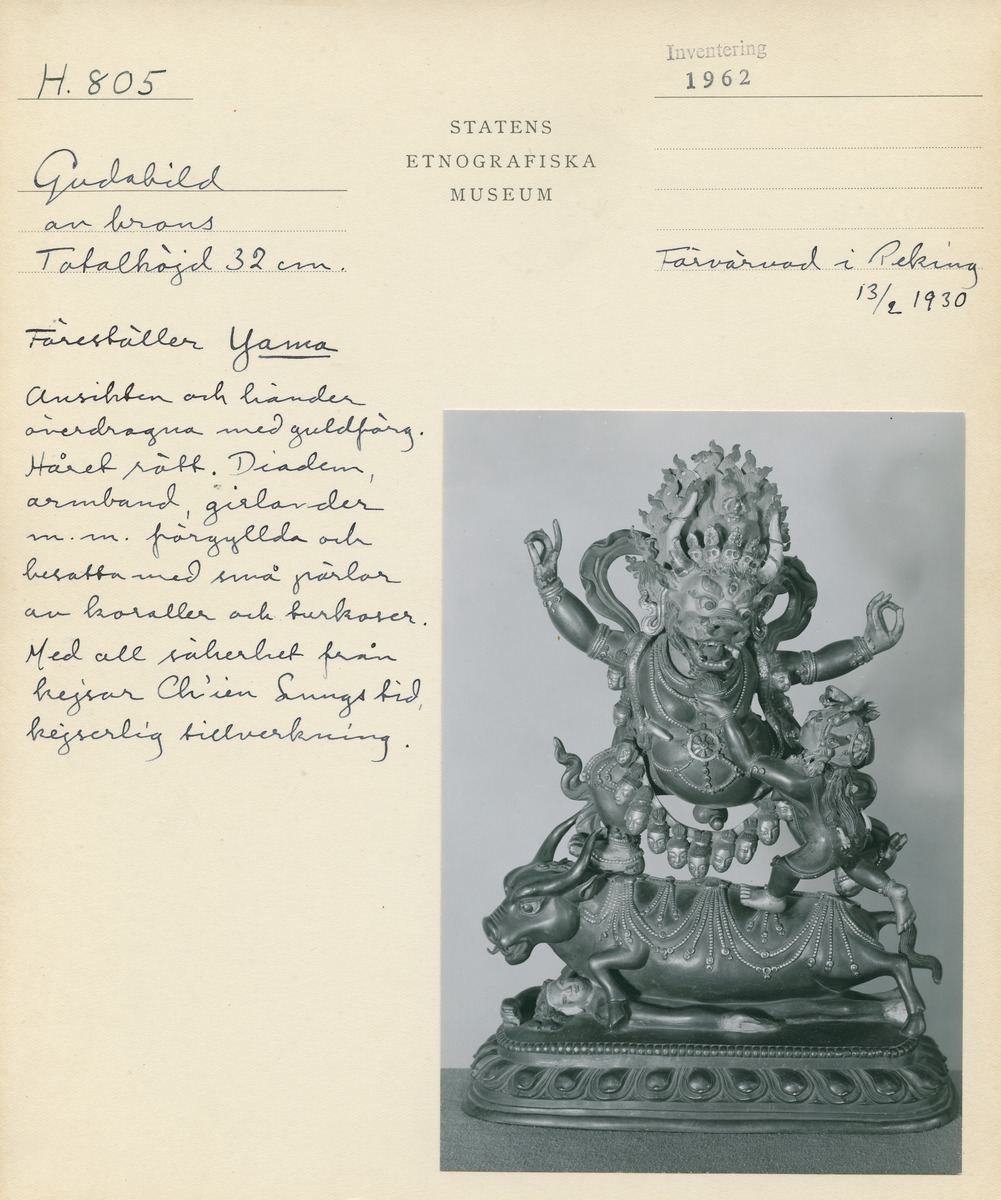 H. 805
Inventering
1962
STATENS
ETNOGRAFISKA
MUSEUM
Gudabild
av brons
Totalhöjd 32 cm.
Förvärvad i Peking
13/2 1930
Föreställer Yama
Ansikten och händer
överdragna med guldfärg.
Håret rött. Diadem,
armband, girlander
m.m. förgyllda och
besatta med små pärlor
av koraller och turkoser.
Med all säkerhet från
kejsar Ch'ien Lungs tid,
kejserlig tillverkning.